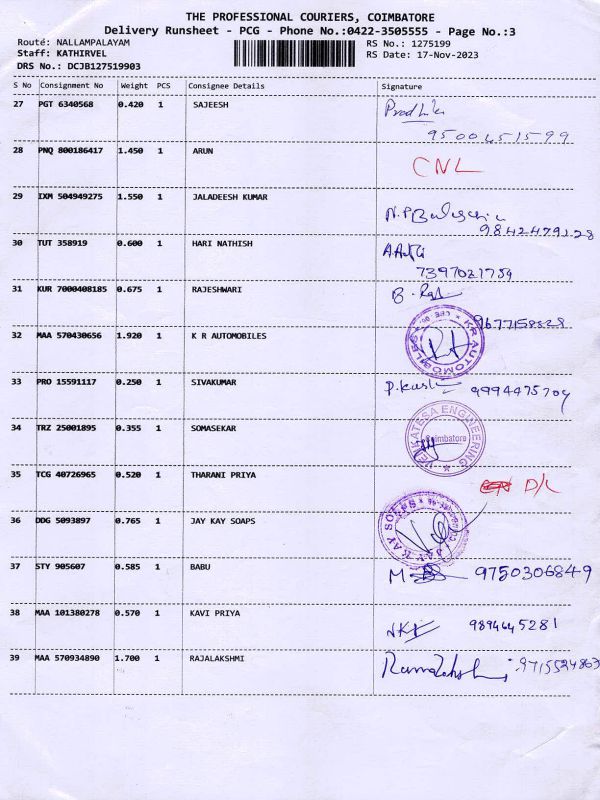 THE PROFESSIONAL COURIERS, COIMBATORE
Delivery Runsheet - PCG - Phone No.:0422-3505555 - Page No.:3
Route: NALLAMPALAYAM
Staff: KATHIRVEL
DRS No.: DCJB127519903
RS No.: 1275199
RS Date: 17-Nov-2023
S No Consignment No Weight PCS Consignee Details Signature
27 PGT 6340568 0.420 1 SAJEESH
9500651599
28 PNQ 800186417 1.450 1 ARUN CNL
29 IXM 504949275 1.550 1 JALADEESH KUMAR
9842479128
30 TUT 358919 0.600 1 HARI NATHISH
7397021759
31 KUR 7000408185 0.675 1 RAJESHWARI
9677158828
32 MAA 570430656 1.920 1 K R AUTOMOBILES KR AUTOMOBILES
33 PRO 15591117 0.250 1 SIVAKUMAR 9994475704
34 TRZ 25001895 0.355 1 SOMASEKAR VENKATESA ENGINEERING Coimbatore
35 TCG 40726965 0.520 1 THARANI PRIYA D/L
36 DDG 5093897 0.765 1 JAY KAY SOAPS JAY KAY SOAPS
37 STY 905607 0.585 1 BABU 9750306849
38 MAA 101380278 0.570 1 KAVI PRIYA 9894645281
39 MAA 570934890 1.700 1 RAJALAKSHMI 9715524863